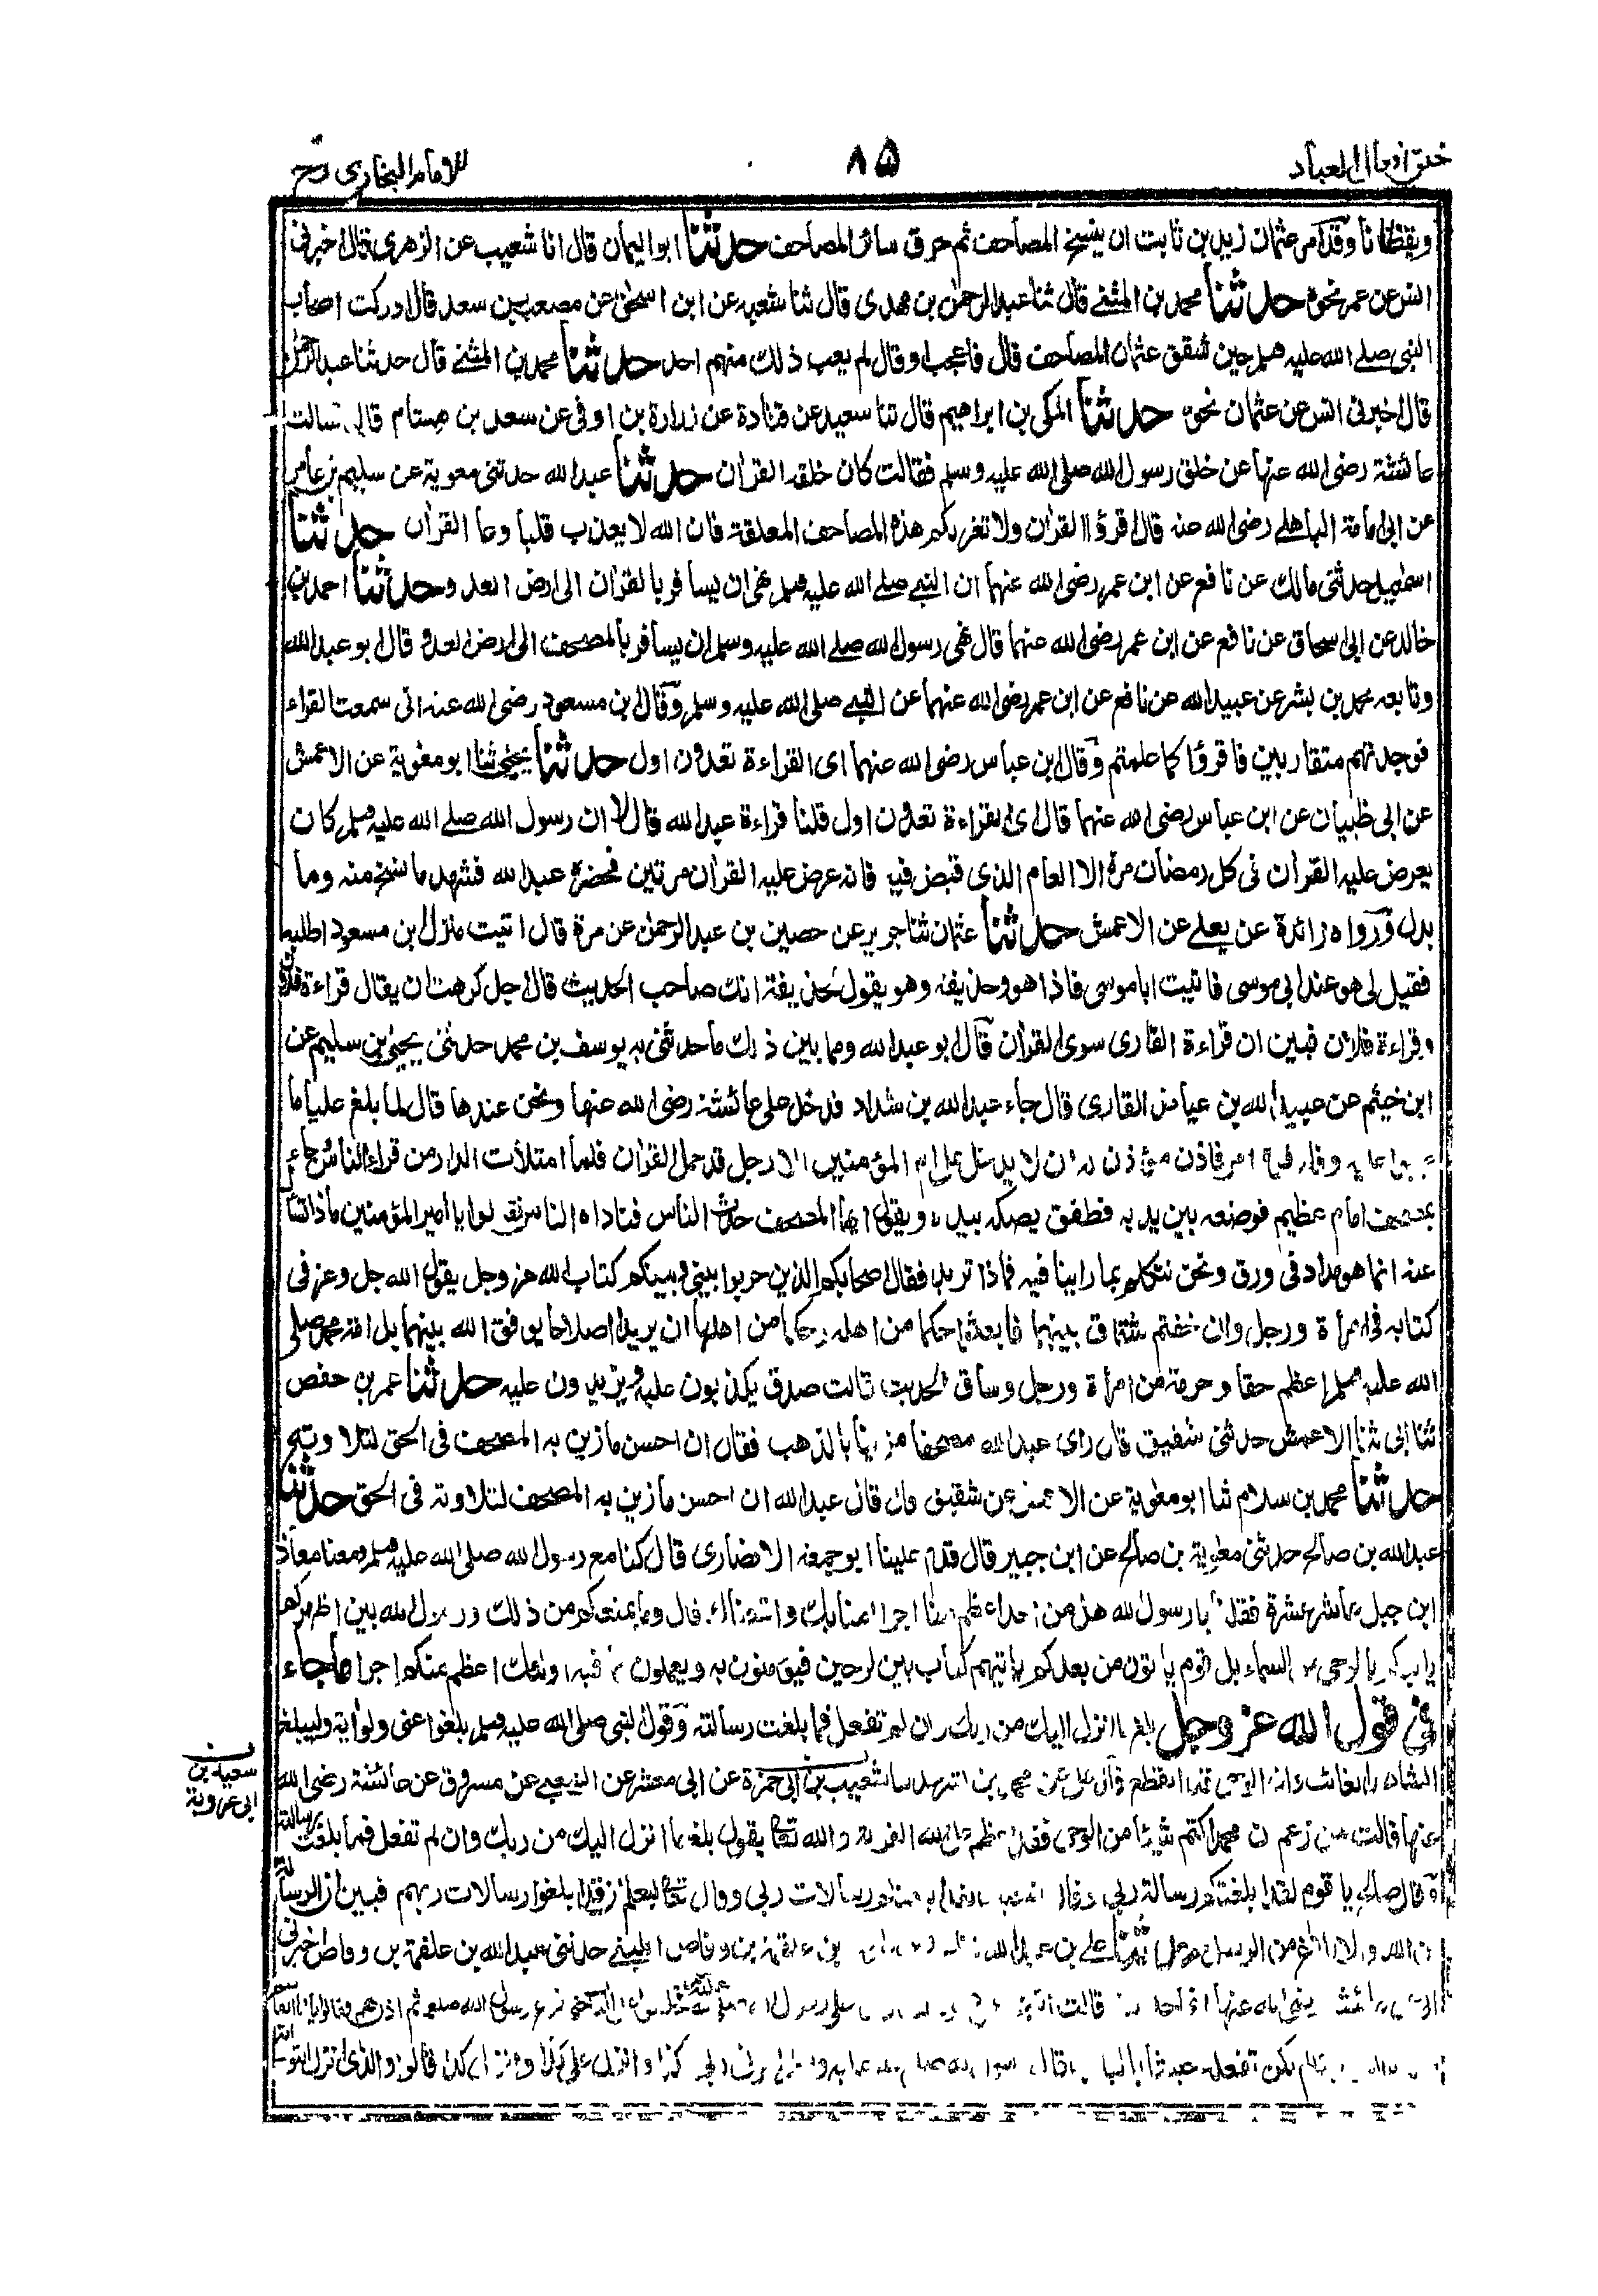 خلق افعال العباد
٨٥
للامام البخاري رح
ويقظانا وقد امر عثمان زيد بن ثابت ان ينسخ المصاحف ثم حرق سائر المصاحف حدثنا ابو اليمان قال انا شعيب عن الزهري قال اخبرني
انس عن عمر نحوه حدثنا محمد بن المثنى قال ثنا عبد الرحمن بن مهدي قال ثنا شعبه عن ابن اسحق عن مصعب بن سعد قال ادركت اصحاب
النبي صلے الله عليه وسلم حين شقق عثمان المصاحف قال فاعجب اوقال لم يعب ذلك منهم احد حدثنا محمد بن المثنى قال حدثنا عبد الرحمن
قال اخبرني انس عن عثمان نحوه حدثنا المكي بن ابراهيم قال ثنا سعيد عن قتادة عن زرارة بن اوفى عن سعد بن هشام قال سالت
عائشة رضي الله عنها عن خلق رسول الله صلى الله عليه وسلم فقالت كان خلقه القرآن حدثنا عبد الله حدثنى معوية عن سليم بن عامر
عن ابي امامة الباهلے رضي الله عنه قال اقرؤا القران ولا تغرنكم هذه المصاحف المعلقة فان الله لا يعذب قلبا وعا القران حدثنا
اسمعيل حدثنى مالك عن نافع عن ابن عمر رضي الله عنهما ان النبي صلے الله عليه وسلم نهى ان يسافر بالقران الى ارض العدو حدثنا احمد بن
خالد عن ابي اسحاق عن نافع عن ابن عمر رضي الله عنهما قال نهى رسول الله صلے الله عليه وسلم ان يسافر بالمصحف الى ارض العدو قال ابو عبد الله
وتابعه محمد بن بشر عن عبيد الله عن نافع عن ابن عمر رضي الله عنهما عن النبي صلى الله عليه وسلم وقال ابن مسعود رضي الله عنه انى سمعت القراء
فوجدتهم متقاربين فاقرؤا كما علمتم وقال ابن عباس رضي الله عنهما اى القراءة تعدون اول حدثنا يحيى ثنا ابو معوية عن الاعمش
عن ابي ظبيان عن ابن عباس رضي الله عنهما قال اى القراءة تعدون اول قلنا قراءة عبد الله قال لا ان رسول الله صلے الله عليه وسلم كان
يعرض عليه القرآن في كل رمضان مرة الا العام الذي قبض فيه فانه عرض عليه القران مرتين فحضره عبد الله فشهد ما نسخ منه وما
بدل ورواه زائدة عن يعلے عن الاعمش حدثنا عثمان ثنا جرير عن حصين بن عبد الرحمن عن مرة قال اتيت منزل ابن مسعود اطلبه
فقيل لى هو عند ابي موسى فاتيت ابا موسى فاذا هو وحذيفه وهو يقول لحذيفة انك صاحب الحديث قال اجل كرهت ان يقال قراءة فلان
وقراءة فلان فبين ان قراءة القارى سوى القران قال ابو عبد الله ومما بين ذلك ما حدثنى به يوسف بن محمد حدثنى يحيى بن سليم عن
ابن خيثم عن عبيد الله بن عياض القارى قال جاء عبد الله بن شداد فدخل على عائشة رضي الله عنها ونحن عندها قال لما بلغ عليا ما
امر فاذن مؤذن ان لا يدخل على امير المؤمنين الا رجل قد حمل القران فلما امتلأت الدار من قراء الناس جاء
بمصحف امام عظيم فوضعه بين يديه فطفق يصكه بيده ويقول ايها المصحف حدث الناس فناداه الناس فقالوا يا أمير المؤمنين ماذا تسأل
عنه انما هو مداد فى ورق ونحن نتكلم بما راينا فيه فماذا تريد فقال اصحابكم الذين حربوا بيني وبينكم كتاب الله عز وجل يقول الله جل وعز فى
كتابه في امرأة ورجل وان خفتم شقاق بينهما فابعثوا حكما من اهله وحكما من اهلها ان يريدا اصلاحا يوفق الله بينهما بل امة محمد صلى
الله عليه وسلم اعظم حقا وحرمة من امرأة ورجل وساق الحديث قالت صدق يكذبون عليه ويزيدون عليه حدثنا عمر بن حفص
ثنا ابي ثنا الاعمش حدثنى شقيق قال راى عبد الله مصحفا مزينا بالذهب فقال ان احسن ما زين به المصحف فى الحق لتلاوته
حدثنا محمد بن سلام ثنا ابو معوية عن الاعمش عن شقيق قال قال عبد الله ان احسن ما زين به المصحف لتلاوته فى الحق حدثنا
عبد الله بن صالح حدثنى معوية بن صالح عن ابن جبير قال قدم علينا ابو جمعة الانصارى قال كنا مع رسول الله صلى الله عليه وسلم ومعنا معاذ
ابن جبل عاشر عشرة فقلنا يا رسول الله هل من احد اعظم منا اجرا امنا بك واتبعناك قال وما يمنعكم من ذلك ورسول الله بين اظهركم
ياتيكم بالوحي من السماء بل قوم ياتون من بعدكم ياتيهم كتاب بين لوحين فيؤمنون به ويعملون بما فيه اولئك اعظم منكم اجرا ما جاء
في قول الله عز وجل بلغ ما انزل اليك من ربك وان لم تفعل فما بلغت رسالته وقول النبي صلى الله عليه وسلم بلغوا عنى ولو اية وليبلغ
الشاهد الغائب شعيب بن ابى حمزة عن ابى معشر عن الشعبي عن مسروق عن عائشة رضى الله
سعيد بن
ابى عروبة
عنها قالت من زعم ان محمدا كتم شيئا من الوحى فقد اعظم على الله الفرية والله تعالى يقول بلغ ما انزل اليك من ربك وان لم تفعل فما بلغت رسالته
قال صالح يا قوم لقد ابلغتكم رسالة ربى رسالات ربى وقال تعالى ليعلم ان قد ابلغوا رسالات ربهم فبين ان الرسالة
من الله علي بن عبد الله الليثى حدثنى عبد الله بن علقمة بن وقاص اخبرنى
عائشة رضى الله عنها قالت
لم يكن تفعل كذا وانزل على كذا قالوا والذى انزل